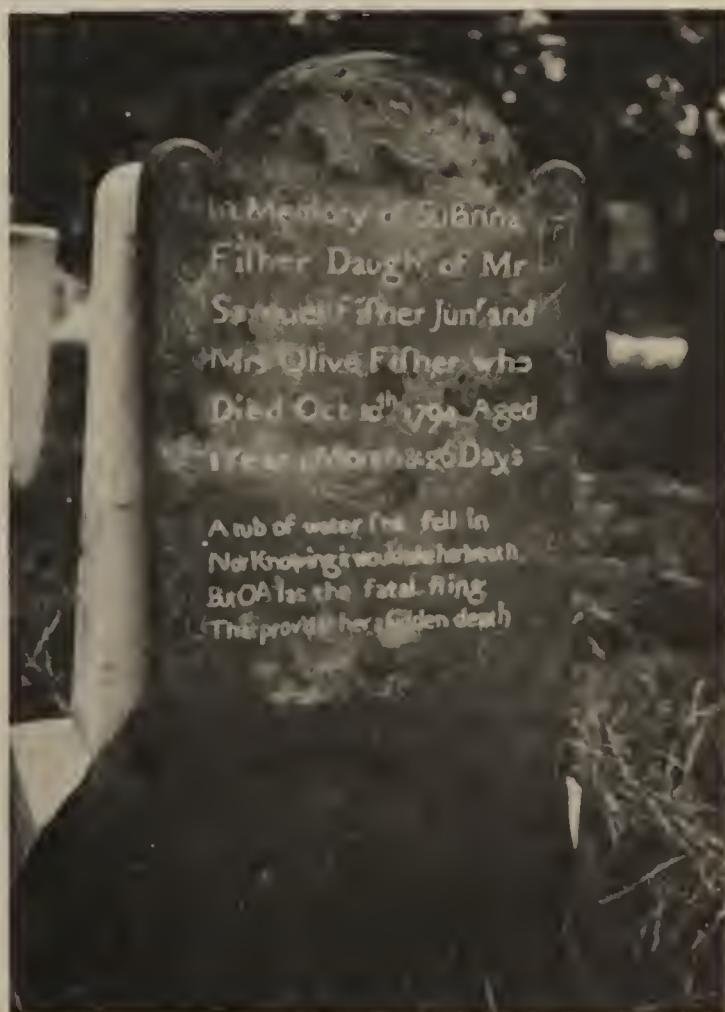 In Memory of Susanna
Fiſher Daugh. of Mr
Samuel Fiſher Junʳ and
Mrs Olive Fiſher who
Died Oct 10ᵗʰ Aged
1 Year Month & 26 Days
A tub of water fell in
Not Knowing it would her breath
But O Alas the fatal fling
That her ſudden death